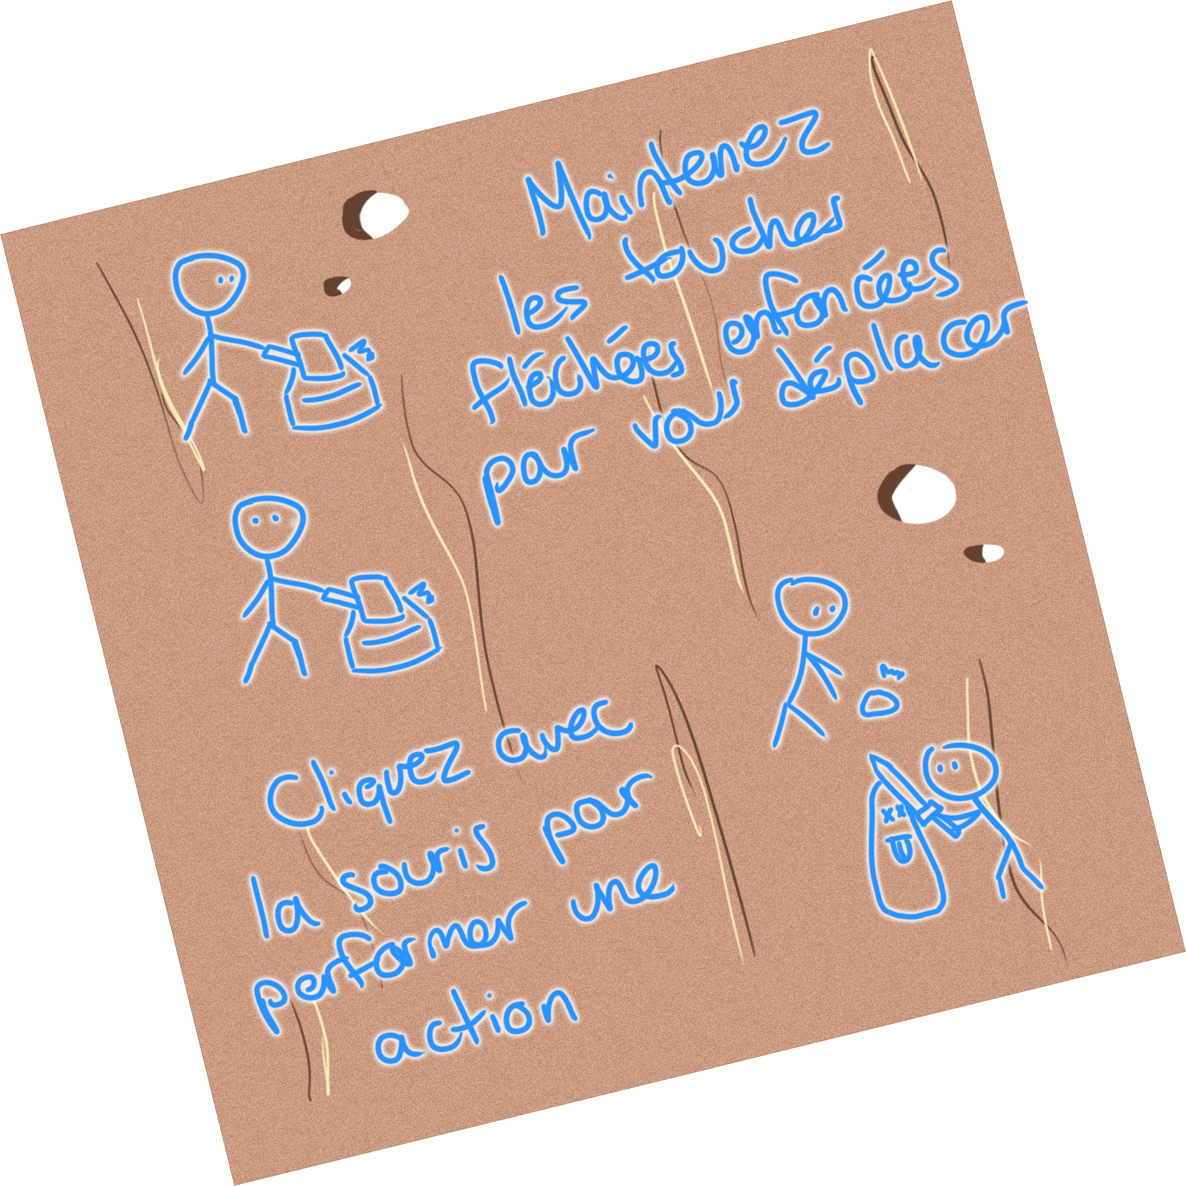 Maintenez
les touches
fléchées enfoncées
par vous déplacer
Cliquez avec
la souris par
performer une
action